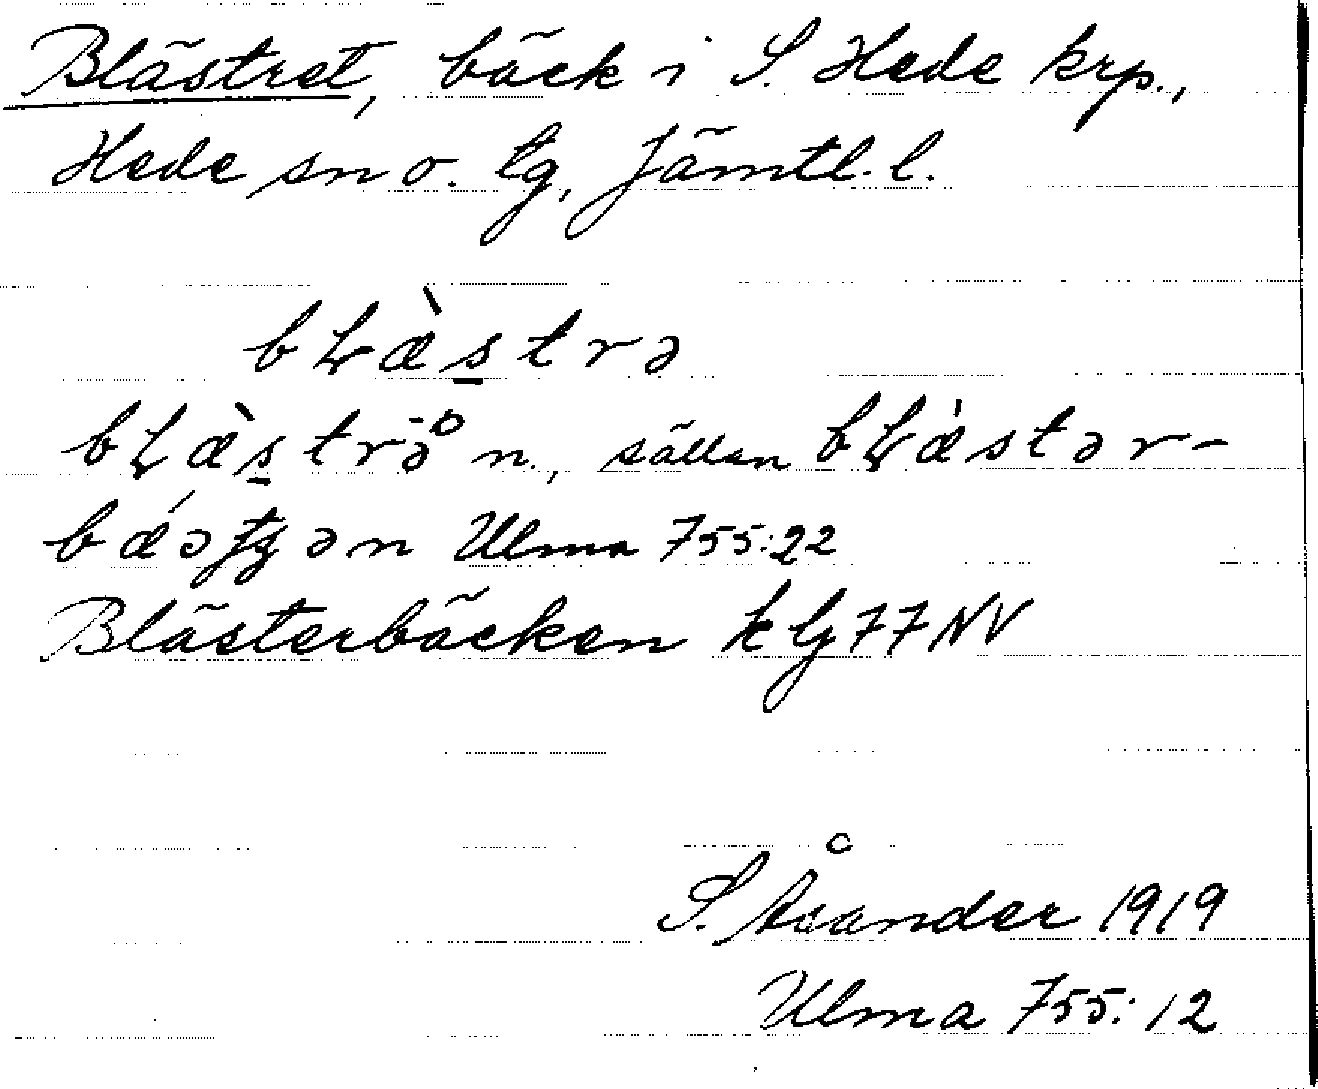 Blästret, bäck i S. Hede krp.,
Hede sn o. tg, Jämtl. l.
bḷæ̀s̠trə
bḷæ̀s̠trə̄̊ n., sällan bḷæ̀stər-
bǽəʃtʒən Ulma 755:22
Blästerbäcken k lj 77 NV
S. Åsander 1919
Ulma 755:12